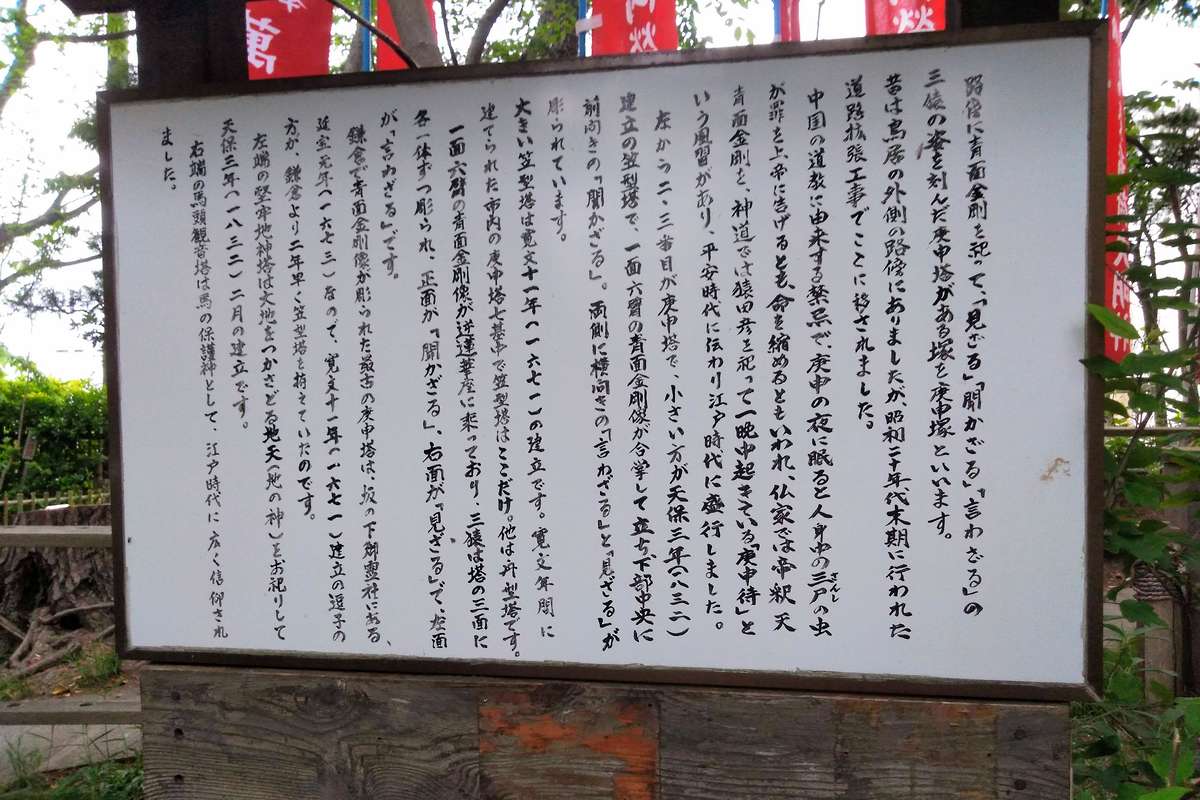 路傍に青面金剛を祀って、「見ざる」「聞かざる」「言わざる」の
三猿の姿を刻んだ庚申塔がある塚を庚申塚といいます。
昔は鳥居の外側の路傍にありましたが、昭和二十年代末期に行われた
道路拡張工事でここに移されました。
中国の道教に由来する禁忌で、庚申の夜に眠ると人身中の三尸の虫
さんし
が罪を上帝に告げるとも、命を縮めるともいわれ、仏家では帝釈天
青面金剛を、神道では猿田彦を祀って一晩中起きている「庚申待」と
いう風習があり、平安時代に伝わり江戸時代に盛行しました。
左から二、三番目が庚申塔で、小さい方が天保三年(一八三二)
建立の笠型塔で、一面六臂の青面金剛像が合掌して立ち、下部中央に
前向きの「聞かざる」。両側に横向きの「言わざる」と「見ざる」が
彫られています。
大きい笠型塔は寛文十一年(一六七一)の建立です。寛文年間に
建てられた市内の庚申塔七基中で笠型塔はここだけ。他は舟型塔です。
一面六臂の青面金剛像が逆蓮華座に乗っており、三猿は塔の三面に
各一体ずつ彫られ、正面が「聞かざる」、右面が「見ざる」で、左面
が「言わざる」です。
鎌倉で青面金剛像が彫られた最古の庚申塔は、坂の下御霊社にある、
延宝元年(一六七三)なので、寛文十一年(一六七一)建立の逗子の
方が、鎌倉より二年早く笠型塔を持えていたのです。
左端の堅牢地神塔は大地をつかさどる地天(地の神)をお祀りして
天保三年(一八三二)二月の建立です。
右端の馬頭観音塔は馬の保護神として、江戸時代に広く信仰され
ました。